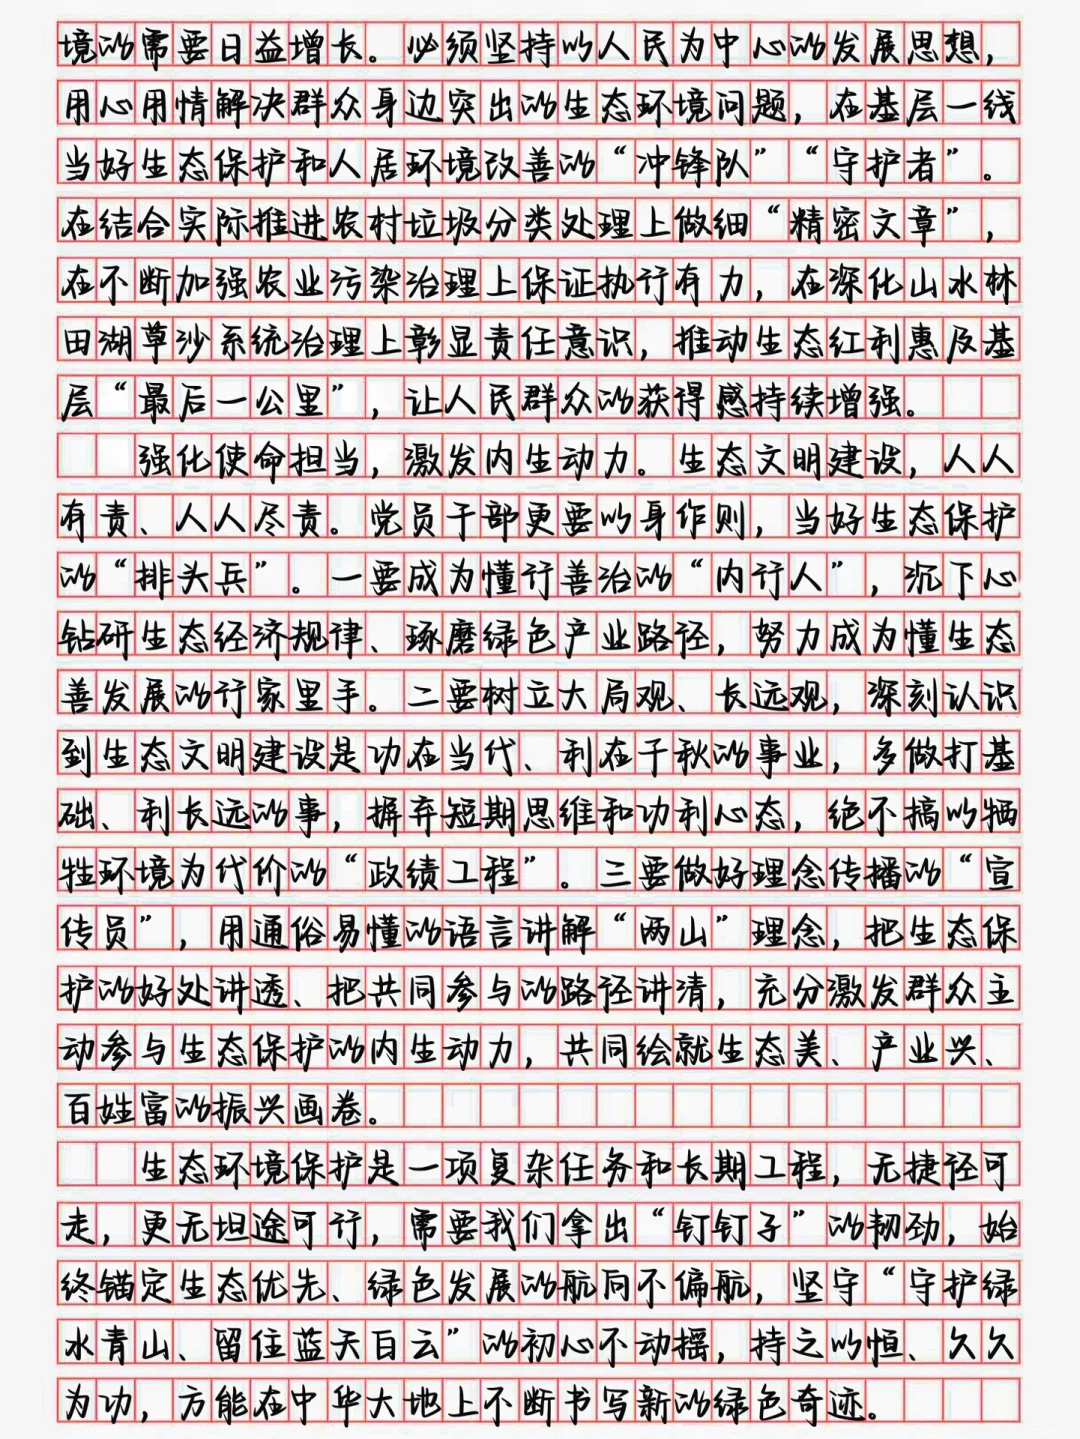 境的需要日益增长。必须坚持以人民为中心的发展思想，
用心用情解决群众身边突出的生态环境问题，在基层一线
当好生态保护和人居环境改善的“冲锋队”“守护者”。
在结合实际推进农村垃圾分类处理上做细“精密文章”，
在不断加强农业污染治理上保证执行有力，在深化山水林
田湖草沙系统治理上彰显责任意识，推动生态红利惠及基
层“最后一公里”，让人民群众的获得感持续增强。
强化使命担当，激发内生动力。生态文明建设，人人
有责、人人尽责。党员干部更要以身作则，当好生态保护
的“排头兵”。一要成为懂行善治的“内行人”，沉下心
钻研生态经济规律、琢磨绿色产业路径，努力成为懂生态
善发展的行家里手。二要树立大局观、长远观，深刻认识
到生态文明建设是功在当代、利在千秋的事业，多做打基
础、利长远的事，摒弃短期思维和功利心态，绝不搞以牺
牲环境为代价的“政绩工程”。三要做好理念传播的“宣
传员”，用通俗易懂的语言讲解“两山”理念，把生态保
护的好处讲透、把共同参与的路径讲清，充分激发群众主
动参与生态保护的内生动力，共同绘就生态美、产业兴、
百姓富的振兴画卷。
生态环境保护是一项复杂任务和长期工程，无捷径可
走，更无坦途可行，需要我们拿出“钉钉子”的韧劲，始
终锚定生态优先、绿色发展的航向不偏航，坚守“守护绿
水青山、留住蓝天白云”的初心不动摇，持之以恒、久久
为功，方能在中华大地上不断书写新的绿色奇迹。